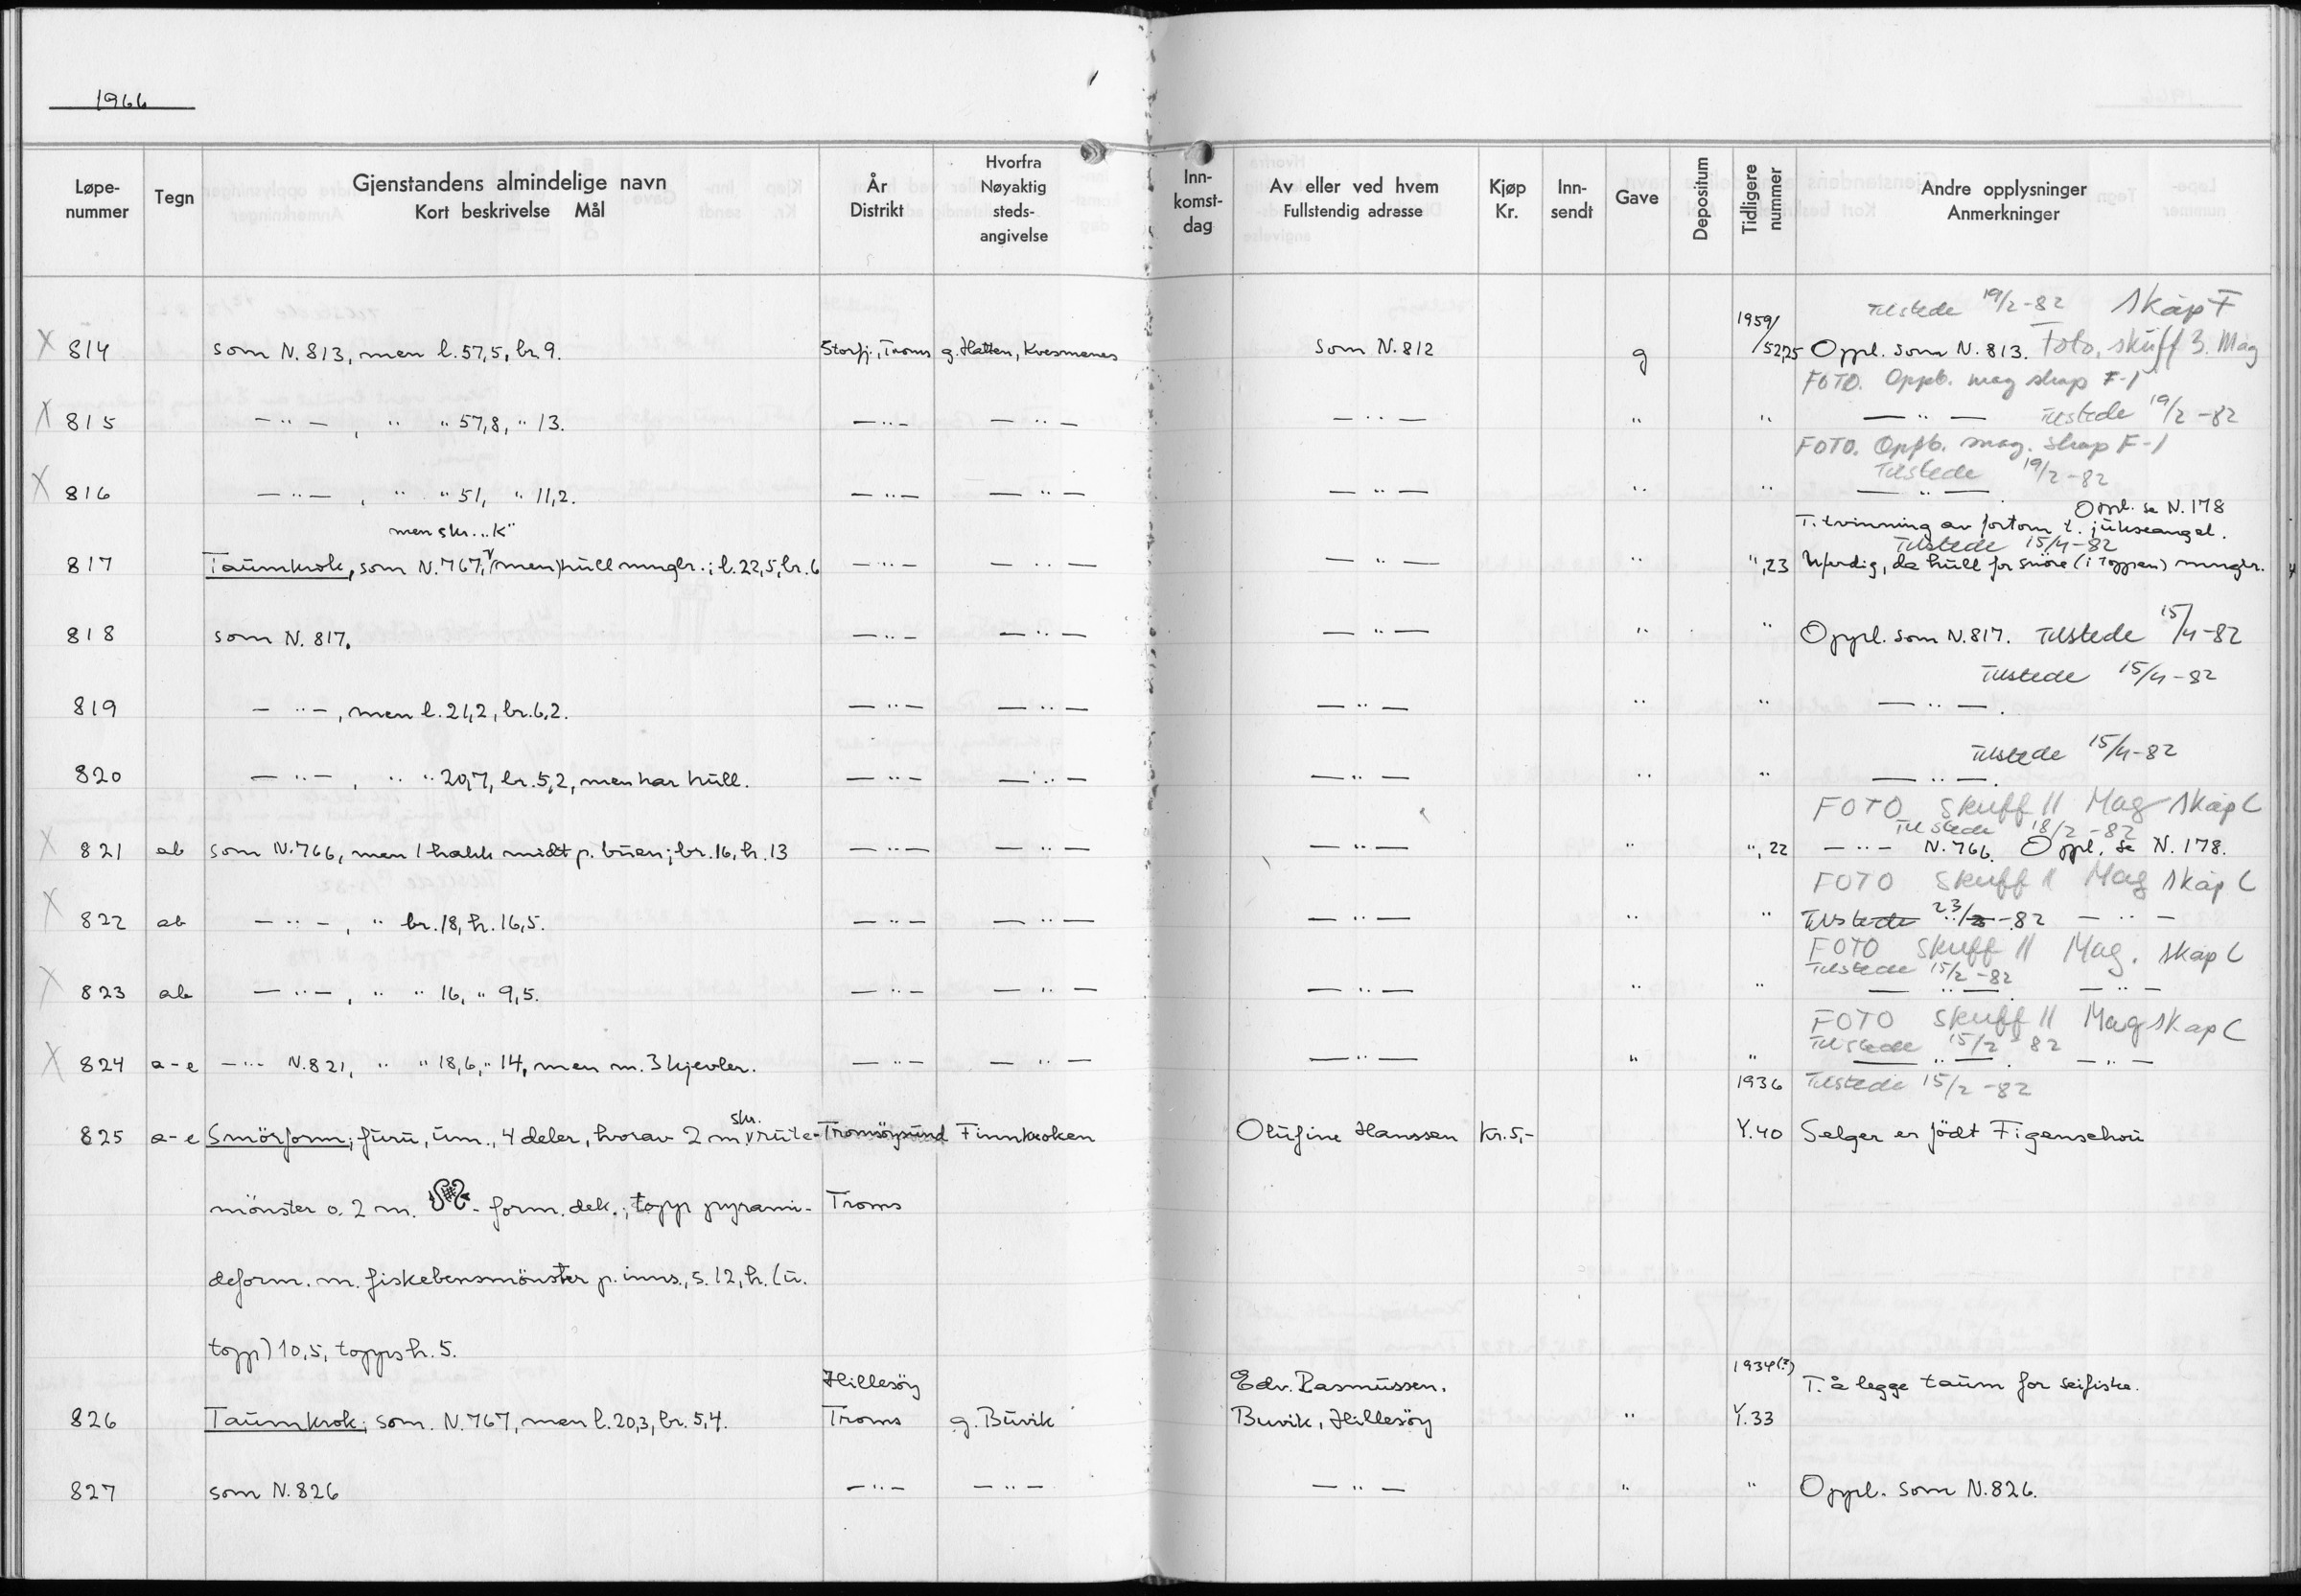 1966
Løpe-nummer Tegn Gjenstandens almindelige navn Kort beskrivelse Mål År Distrikt Hvorfra Nøyaktig steds-angivelse Inn-komst-dag Av eller ved hvem Fullstendig adresse Kjøp Kr. Inn-sendt Gave Depositum Tidligere nummer Andre opplysninger Anmerkninger
Tilstede 19/2-82 Skåp F
1959/
X 814 som N. 813, men l. 57,5, br. 9. Storfj., Troms g. Hatten, Kvesmenes Som N. 812 g /52,25 Oppl. som N. 813. Foto, skuff 3. Mag
FOTO. Oppb. mag skap F-1
X 815 — " —, " " 57,8, " 13. — " — — " — — " — " " — " — Tilstede 19/2-82
FOTO. Oppb. mag. skap F-1
Tilstede 19/2-82
X 816 — " —, " " 51, " 11,2. — " — — " — — " — " " — " —.
Oppl. se N. 178
men skr. "K" T. tvinning av fortom t. jukseangel.
Tilstede 15/4-82
817 Taumkrok, som N. 767, (men) hull mnglr.; l. 22,5, br. 6 — " — — " — — " — " ", 23 Uferdig, da hull for snöre (i toppen) mnglr.
818 som N. 817. — " — — " — — " — " " Oppl. som N. 817. Tilstede 15/4-82
Tilstede 15/4-82
819 — " —, men l. 21,2, br. 6,2. — " — — " — — " — " " — " —.
Tilstede 15/4-82
820 — " —, " " 20,7, br. 5,2, men har hull. — " — — " — — " — " " — " —.
FOTO Skuff 11 Mag skåp C
Tilstede 18/2-82
X 821 ab som N. 766, men 1 hakk midt p. buen; br. 16, h. 13 — " — — " — — " — " ", 22 — " — N. 766. Oppl. se N. 178.
FOTO Skuff 11 Mag skåp C
X 822 ab — " —, " br. 18, h. 16,5. — " — — " — — " — " " Tilstede 23/2-82 — " —
FOTO Skuff 11 Mag. skåp C
Tilstede 15/2-82
X 823 ab — " —, " " 16, " 9,5. — " — — " — — " — " " — " —. — " —
FOTO Skuff 11 Mag skap C
Tilstede 15/2 82
X 824 a-e — " — N. 821, " " 18,6, " 14, men m. 3 kjevler. — " — — " — — " — " " — " —. — " —
1936 Tilstede 15/2-82
skr.
825 a-e Smörform; furu, um., 4 deler, hvorav 2 m. rute- Tromsöysund Finnkroken Olufine Hanssen Kr. 5,- Y.40 Selger er födt Figenschou
mönster o. 2 m. - form. dek.; topp pyrami- Troms
deform. m. fiskebensmönster p. inns., s. 12, h. (u.
topp) 10,5, topps h. 5.
Hillesöy Edv. Rasmussen. 1934(?) T. å legge taum for seifiske.
826 Taumkrok; som. N. 767, men l. 20,3, br. 5,4. Troms g. Buvik Buvik, Hillesöy " Y.33
827 som N. 826 — " — — " — — " — " " Oppl. som N. 826.